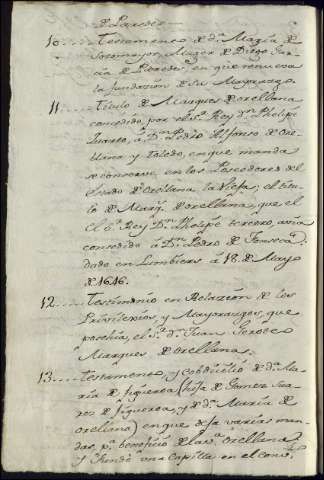 de Paredes
10.... Testamento de D.ª Maria de
Sotomayor, Muger de Diego Gar-
cia de Paredes, en que renueva
la fundazion de su Mayorazgo.
11.... Titulo de Marques de Orellana
concedido, por el S.r Rey D.n Phelipe
Quarto, á D.n Pedro Alfonso de Ore-
llana y Toledo, en que manda
se conserve, en los Poseedores del
Estado de Orellana la Vieja, el titu-
lo de Marq.s de Orellana, que el
S.r Rey D.n Phelipe tercero, avia
concedido á D.n Pedro de Fonseca,
dado en á 18. de Mayo
de 1616.
12.... Testimonio en Relazion de los
Privilexios, y Mayorazgos, que
posehia, el S.r D.n Juan
Marques de Orellana.
13.... Testamento, y Cobdicilio de D.ª Ma-
ria de Figueroa (hija de Gomez Sua-
rez de Figueroa, y de D.ª Maria de
Orellana) en que deja varias man-
das, p.a beneficio de la v.ª Orellana
y funda una Capilla en el conv.to